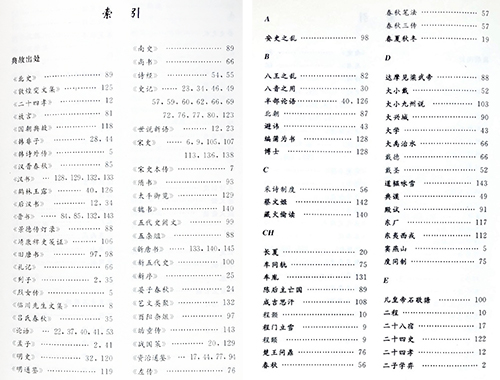 索 引
典故出处
《北史》 89
《敦煌变文集》 125
《二十四孝》 12
《故宫》 81
《国朝典故》 118
《韩非子》 28,44
《韩诗外传》 5
《汉晋春秋》 85
《汉书》 128,129,132,133
《鹤林玉露》 40,126
《后汉书》 12,34
《晋书》 84,85,132,143
《景德传灯录》 88
86
《旧唐书》 97,98
《礼记》 66
《列子》 2,35
《列女传》 5
《临川先生文集》 8
《吕氏春秋》 35
《论语》 22,37,40,41,53
《孟子》 2,41
《明史》 32,120
119
《南史》 89
《尚书》 66
《诗经》 54,55
《史记》 23,34,46,49
57,59,60,62,66,69
72,76,77,80,123
《世说新语》 12,23
《宋史》 6,9,105,107
113,136,138
《宋史本传》 7
《隋书》 93
《太平御览》 129
《魏书》 140
《五代史阙文》 99
《五杂俎》 88
《新唐书》 133,140,145
《新五代史》 100
《新序》 25
《晏子春秋》 24
《艺文类聚》 132
《酉阳杂俎》 97
《幼童传》 143
《战国策》 20,129
《资治通鉴》 17,44,77,94
《左传》 76
A
安史之乱 98
B
八王之乱 82
八音之用 30
半部论语 40,126
北朝 87
避讳 43
编蒲为书 128
博士 128
C
采诗制度 56
蔡文姬 142
藏火偷读 140
CH
长夏 20
车同轨 75
车胤 131
陈后主亡国 89
成吉思汗 108
程颐 10
程门立雪 9
程颢 10
楚王问鼎 76
春秋 56
春秋笔法 57
春秋三传 57
春夏秋冬 19
D
达摩见梁武帝 88
大小戴 52
大小九州说 103
大兴城 90
大学 43
大禹治水 66
戴德 66
戴圣 52
道韫咏雪 143
典谟 49
殿试 91
东厂 117
东夷西戎 112
窦燕山 5
度同制 75
E
儿皇帝石敬瑭 100
二程 10
二十八宿 17
二十四史 122
二十四孝 12
二子学弈 2